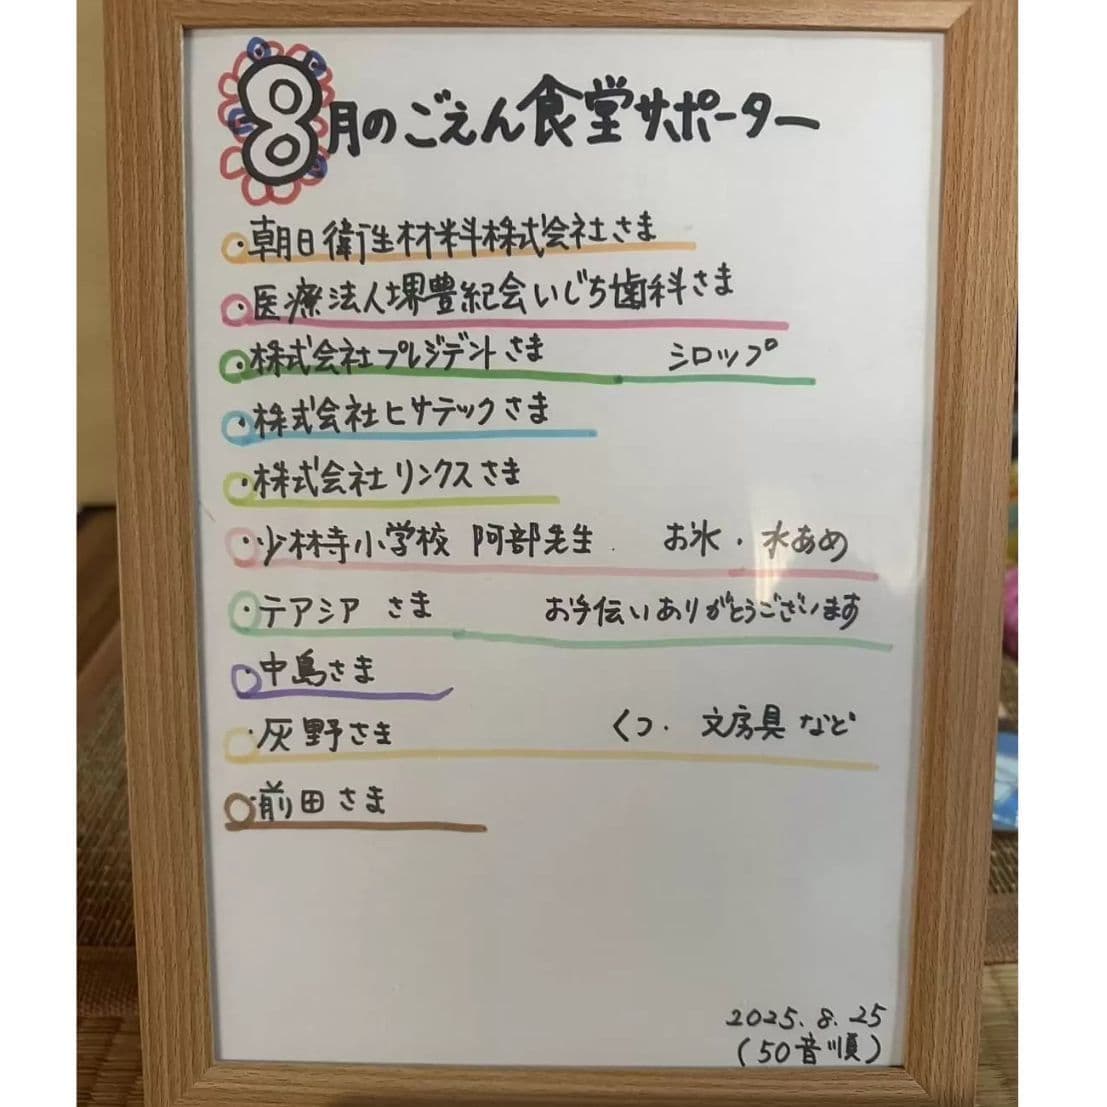 8月のごえん食堂サポーター
・朝日衛生材料株式会社さま
・医療法人堺豊紀会いじち歯科さま
・株式会社プレジデントさま シロップ
・株式会社ヒサテックさま
・株式会社リンクスさま
・少林寺小学校 阿部先生 お氷・水あめ
・テアシア さま お手伝いありがとうございます
・中島さま
・灰野さま くつ・文房具など
・前田さま
2025.8.25
(50音順)